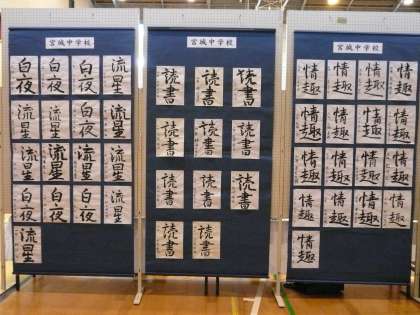 宮城中学校
白夜 白夜 白夜 流星
流星 流星 白夜 流星
流星 流星 流星 流星
白夜 白夜 白夜 流星
流星
宮城中学校
読書 読書 読書
読書 読書 読書
読書 読書 読書
読書 読書
宮城中学校
情趣 情趣 情趣 情趣
情趣 情趣 情趣 情趣
情趣 情趣 情趣 情趣
情趣 情趣 情趣 情趣
情趣